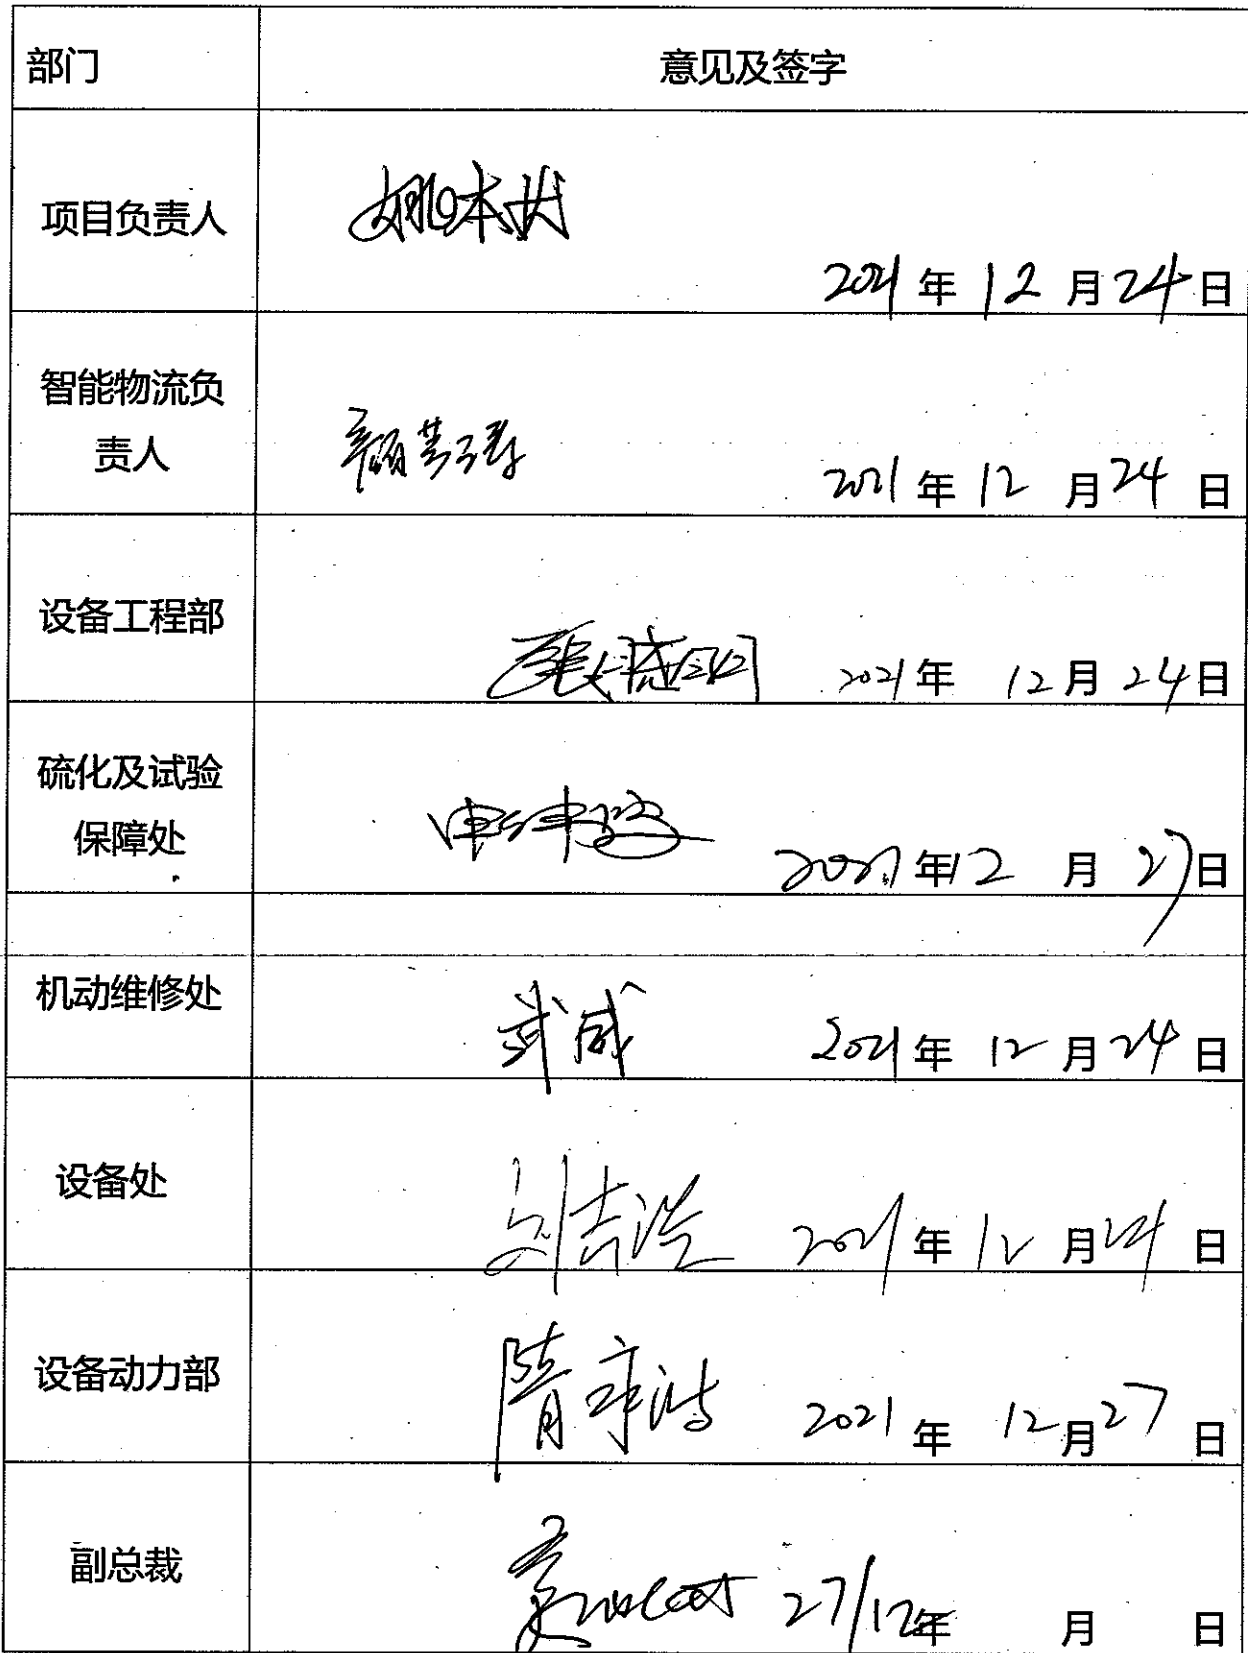 部门
意见及签字
项目负责人
姚本
2021年12月24日
智能物流负
责人
颜
2021年12月24日
设备工程部
2021年12月24日
硫化及试验
保障处
申
2021年12月27日
机动维修处
武威
2021年12月24日
设备处
刘吉
2021年12月24日
设备动力部
隋
2021年12月27日
副总裁
27/12年 月 日